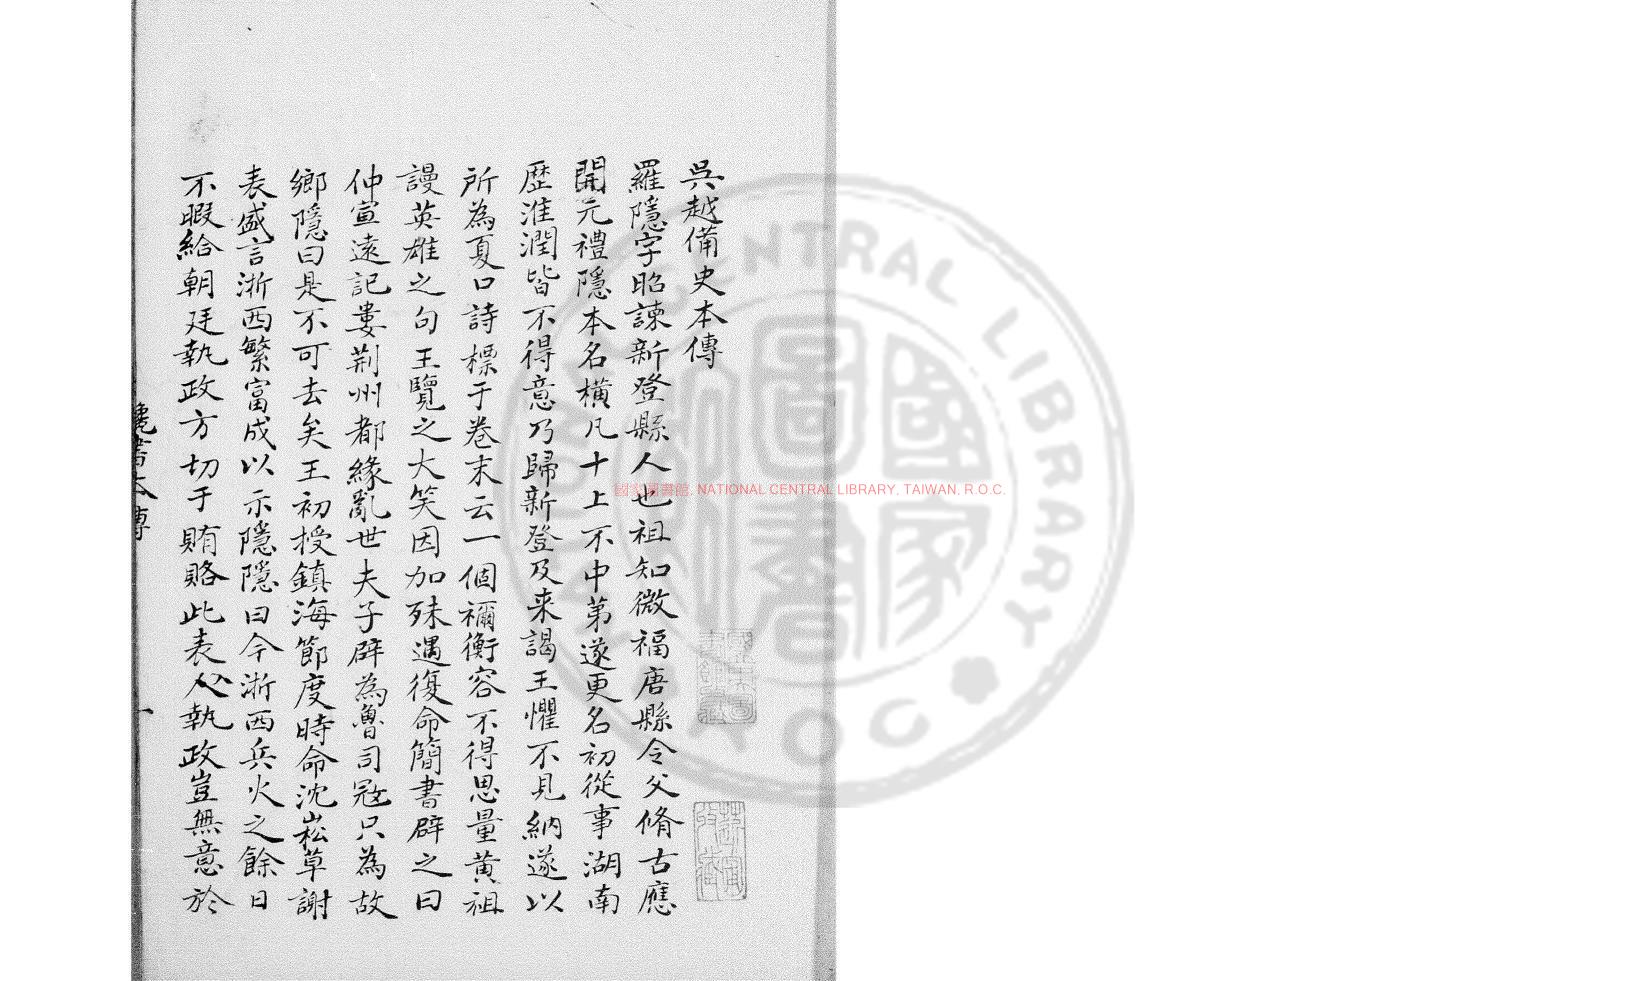 吳越備史本傳
羅隱字昭諫新登縣人也祖知微福唐縣令父脩古應
開元禮隱本名橫凡十上不中第遂更名初從事湖南
歷淮潤皆不得意乃歸新登及来謁王懼不見納遂以
所為夏口詩標于卷末云一個禰衡容不得思量黄祖
謾英雄之句王覽之大笑因加殊遇復命簡書辟之曰
仲宣遠記婁荆州都緣亂世夫子辟為魯司冦只為故
鄉隱曰是不可去矣王初授鎮海節度時命沈崧草謝
表盛言浙西繁富成以示隱隱曰今浙西兵火之餘日
不暇給朝廷執政方切于賄賂此表入執政豈無意於
讒書本傳
一
國家圖書館, NATIONAL CENTRAL LIBRARY, TAIWAN, R.O.C.